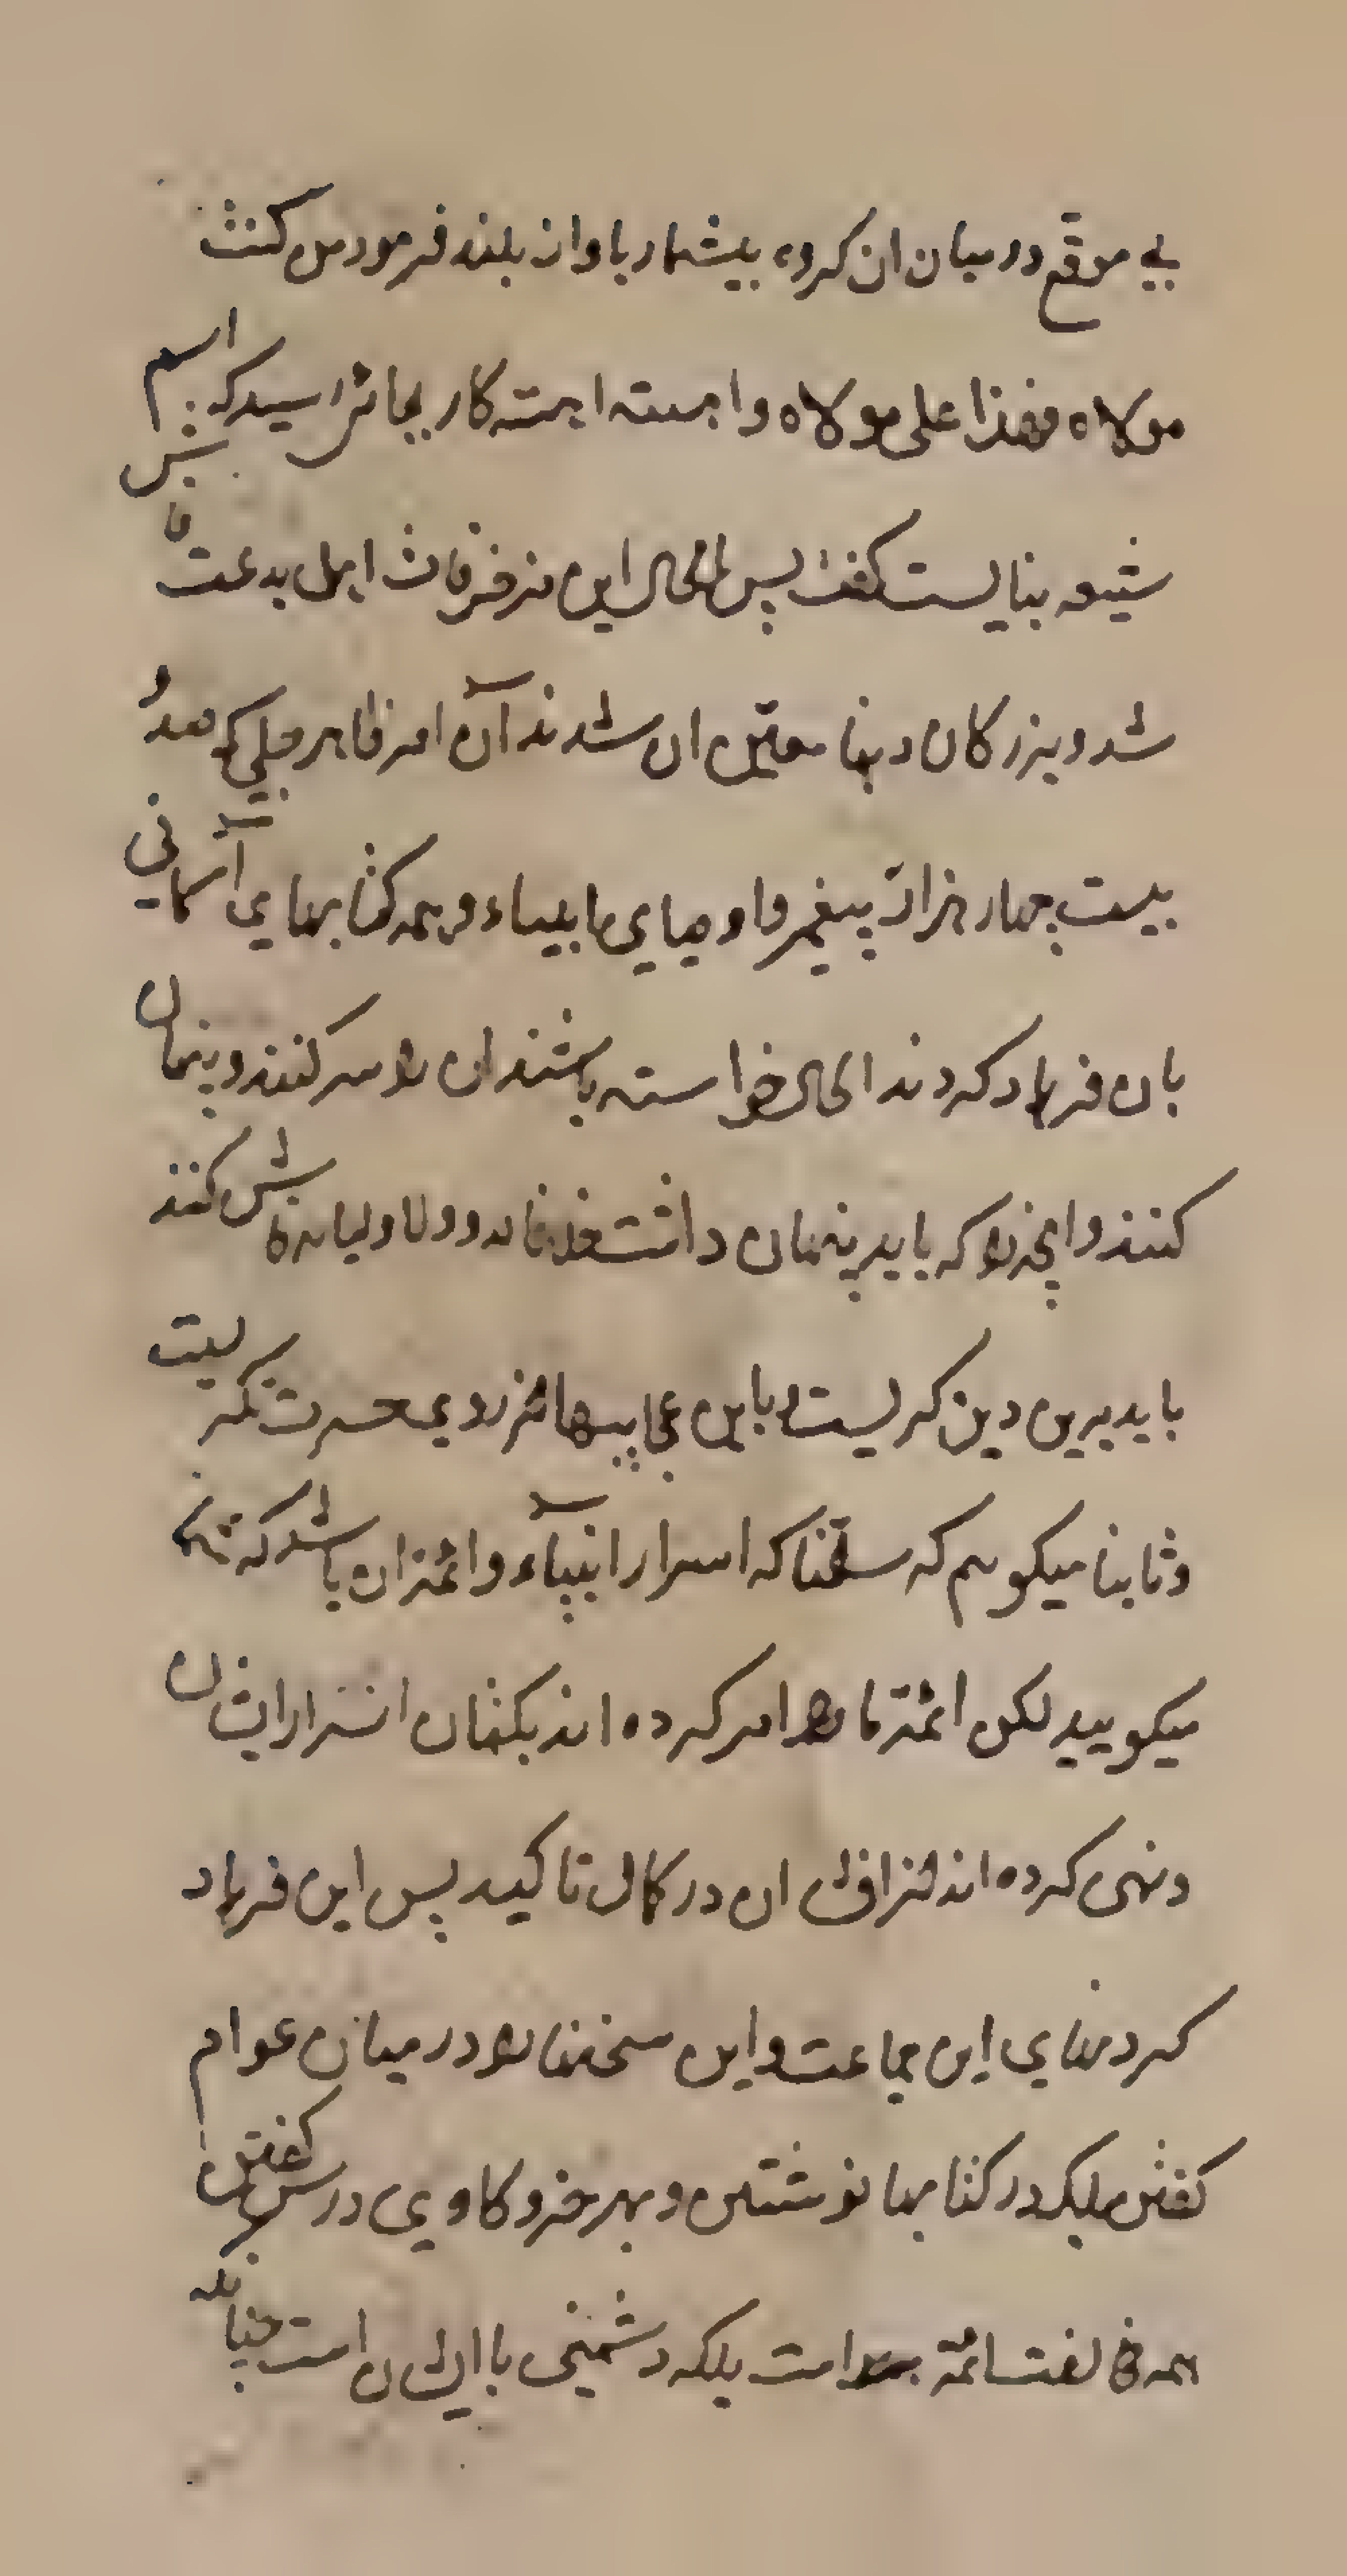 بی موقع در میان ان کروه بیشمار باواز بلند فرمود من کنت
مولاه فهذا علی مولاه و اهسته اهسته کار بجائی رسید که اسم
شیعه بنایست کفت پس الحال این مزخرفات اهل بدعت فاش
شد و بزرکان دنیا معتین ان شدند آن امر ظاهر جلی که صد و
بیست چهار هزار پیغمبر و اوصیای انبیاء و همه کتابهای آسمانی
بان فریاد کردند الحال خواسته باشند ان را سر کنند و پنهان
کنند و انچه را که باید پنهان داشت خدا و اولیا فاش کنند
باید برین دین کریست و باین عجایبها از روی حسرت نکریست
و ثانیا میکویم که سلمنا که اسرار انبیاء و ائمه ان باشد که شما
میکویید لکن ائمه ما را امر کرده اند بکتمان اسرار ایشان
و نهی کرده اند از افشای ان در کمال تاکید پس این فریاد
کردنهای این جماعت و این سخنها را در میان عوام
کفتن بلکه در کتابها نوشتن و بهر خر و کاوی درس کفتن
همه مخالفت ائمه است بلکه دشمنی با ایشان است چنانکه